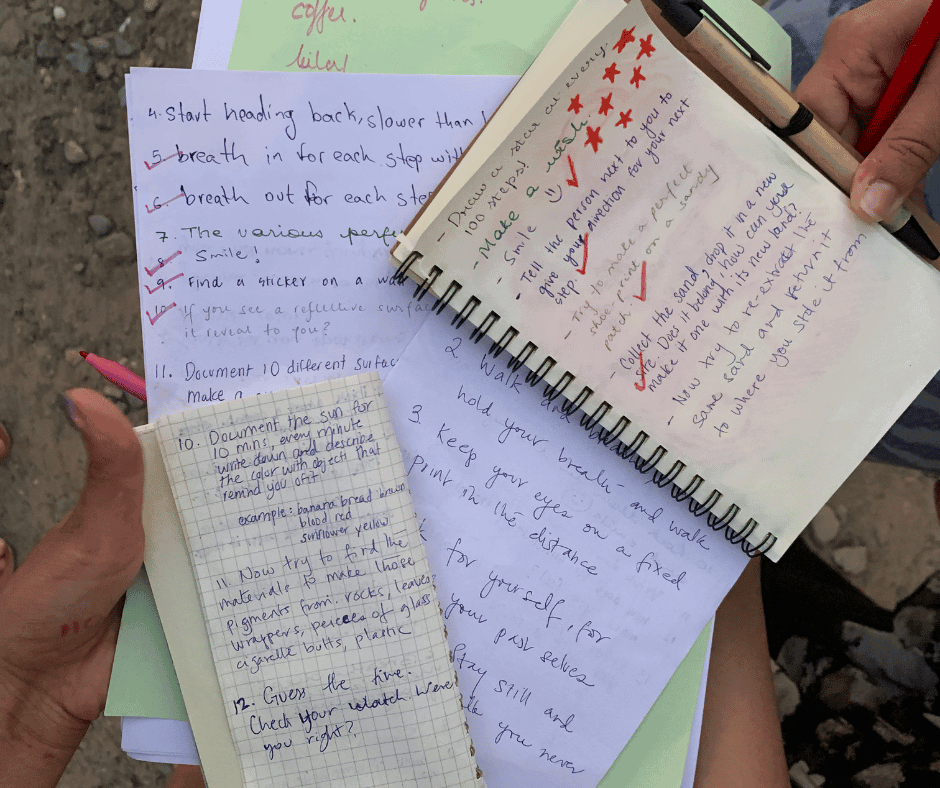 coffee.
4. start heading back, slower than
5. breath in for each step with
6. breath out for each step
7. The various perfe
8. Smile!
9. Find a sticker on a wa
10. If you see a reflective surfac
it reveal to you?
11. Document 10 different surfac
make a
- Draw a star at every
100 steps!
- Make a wish
Smile ☺
- Tell the person next to you to
give you direction for your next
step.
- Try to make a perfect
shoe-print on a sandy
patch.
- Collect the sand, drop it in a new
site. Does it belong, how can you
make it one with its new land?
- Now try to re-extract the
same sand and return it
to where you stole it from
10. Document the sun for
10 mins, every minute
write down and describe
the color with objects that
remind you of it
example: banana bread brown
blood red
sunflower yellow
11. Now try to find the
materials to make those
pigments from: rocks, leaves,
wrappers, peices of glass,
cigarette butts, plastic
12. Guess the time.
Check your watch. Were
you right?
2. Walk and
hold your breath - and walk
3. Keep your eyes on a fixed
point in the distance
for yourself, for
your past selves
Stay still and
you never